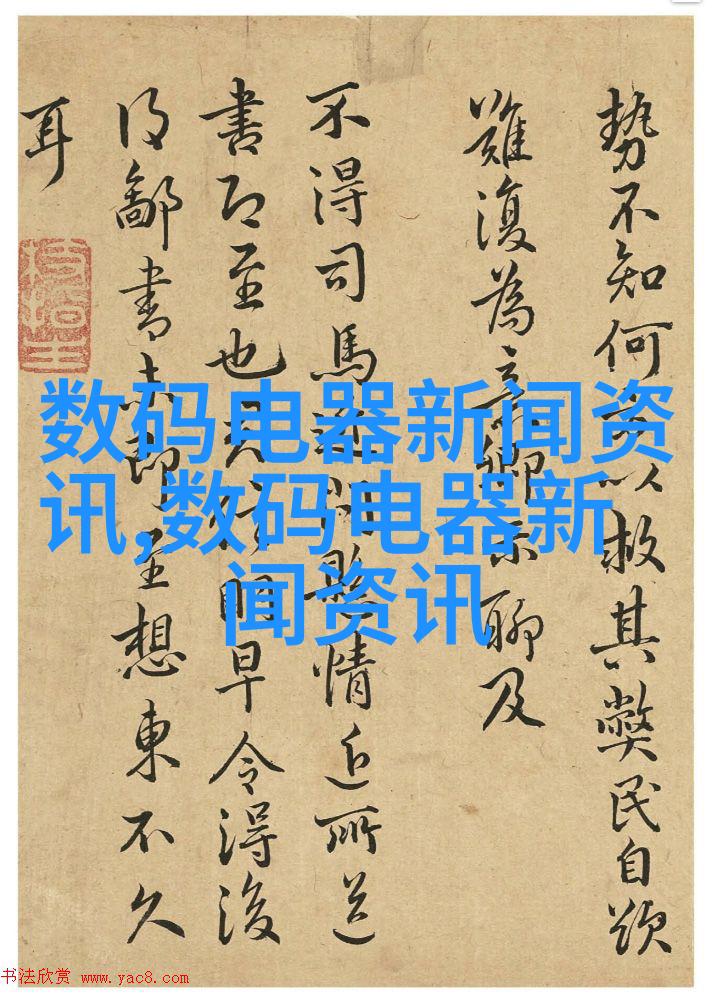 勢不知何以救其弊民自
難復為言卿亦聊及
不得司馬懸情近所送
書即至也明早令得後
得鄙書未即至想東不久
耳
数码电器新闻资
讯,数码电器新
闻资讯
书法欣赏 www.yac8.com